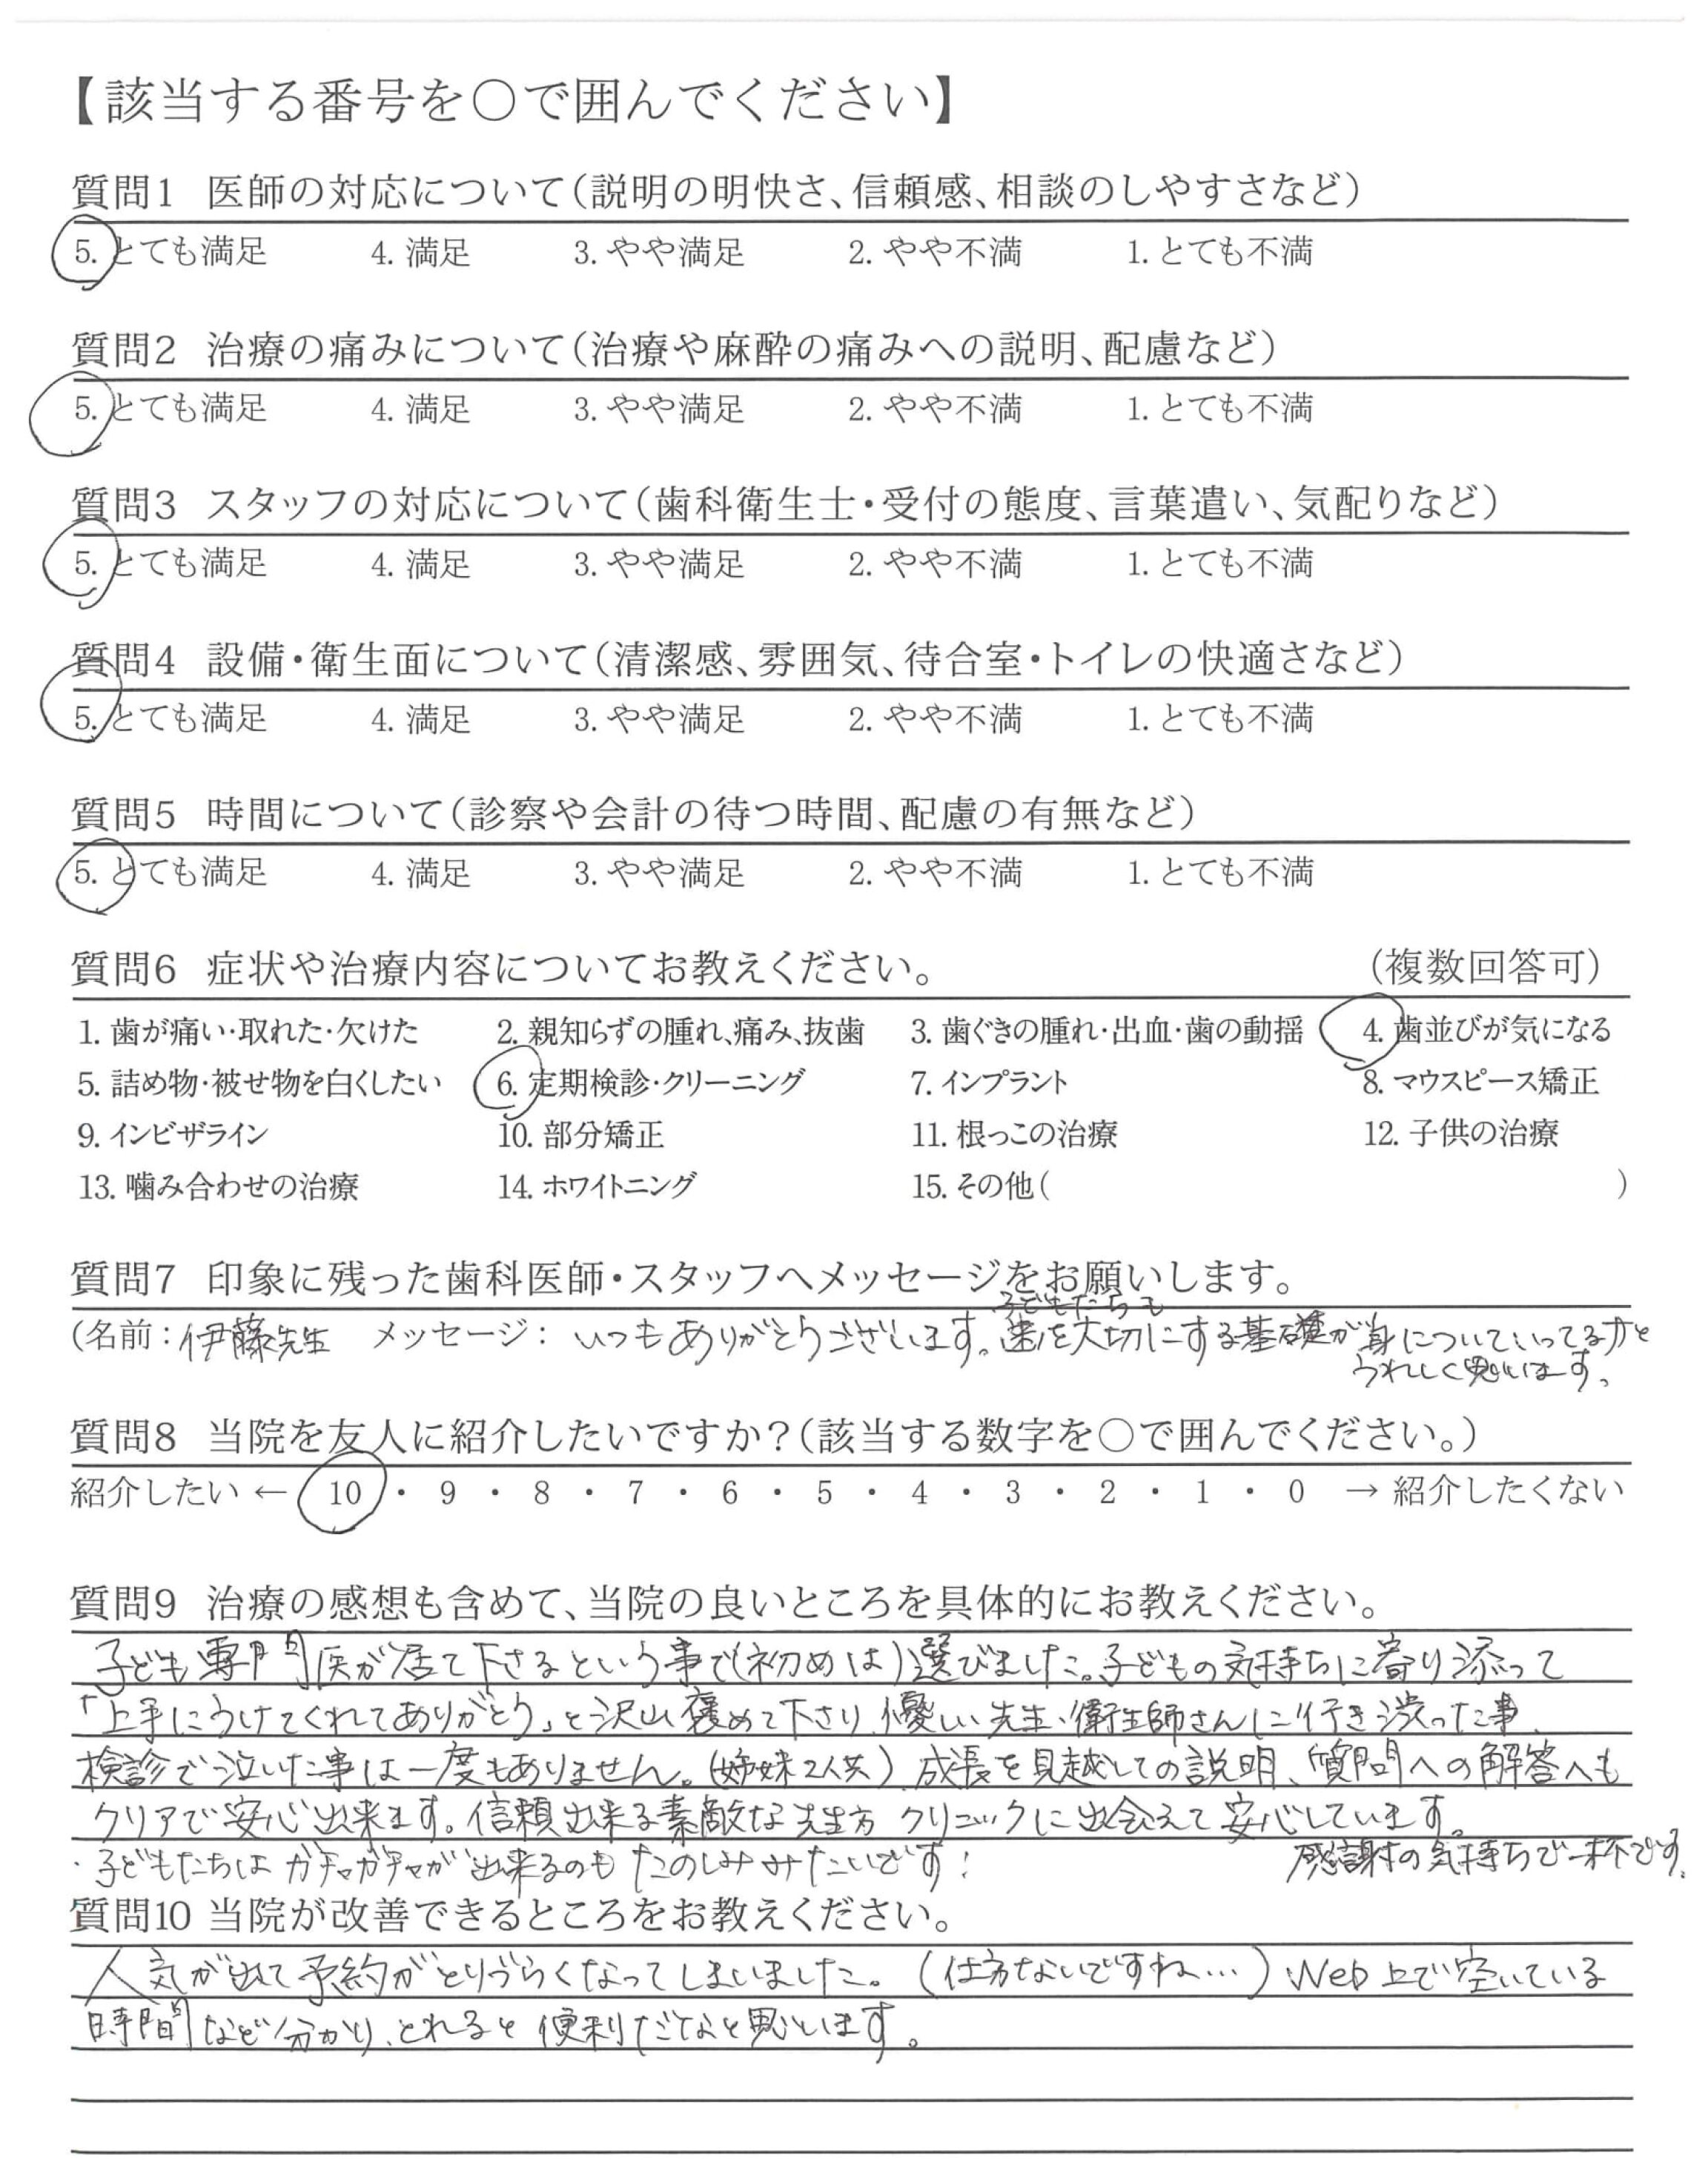 【該当する番号を〇で囲んでください】
質問1 医師の対応について(説明の明快さ、信頼感、相談のしやすさなど)
5. とても満足 4. 満足 3. やや満足 2. やや不満 1. とても不満
質問2 治療の痛みについて(治療や麻酔の痛みへの説明、配慮など)
5. とても満足 4. 満足 3. やや満足 2. やや不満 1. とても不満
質問3 スタッフの対応について(歯科衛生士・受付の態度、言葉遣い、気配りなど)
5. とても満足 4. 満足 3. やや満足 2. やや不満 1. とても不満
質問4 設備・衛生面について(清潔感、雰囲気、待合室・トイレの快適さなど)
5. とても満足 4. 満足 3. やや満足 2. やや不満 1. とても不満
質問5 時間について(診察や会計の待つ時間、配慮の有無など)
5. とても満足 4. 満足 3. やや満足 2. やや不満 1. とても不満
質問6 症状や治療内容についてお教えください。 (複数回答可)
1. 歯が痛い・取れた・欠けた 2. 親知らずの腫れ、痛み、抜歯 3. 歯ぐきの腫れ・出血・歯の動揺 4. 歯並びが気になる
5. 詰め物・被せ物を白くしたい 6. 定期検診・クリーニング 7. インプラント 8. マウスピース矯正
9. インビザライン 10. 部分矯正 11. 根っこの治療 12. 子供の治療
13. 噛み合わせの治療 14. ホワイトニング 15. その他( )
質問7 印象に残った歯科医師・スタッフへメッセージをお願いします。
子どもたちも
(名前:伊藤先生 メッセージ: いつもありがとうございます。歯を大切にする基礎が身についていってるかと
うれしく思います。
質問8 当院を友人に紹介したいですか?(該当する数字を〇で囲んでください。)
紹介したい ← 10 ・ 9 ・ 8 ・ 7 ・ 6 ・ 5 ・ 4 ・ 3 ・ 2 ・ 1 ・ 0 → 紹介したくない
質問9 治療の感想も含めて、当院の良いところを具体的にお教えください。
子ども専門医が居て下さるという事で(初めは)選びました。子どもの気持ちに寄り添って
「上手にうけてくれてありがとう」と沢山褒めて下さり、優しい先生、衛生師さんに行き渋った事、
検診で泣いた事は一度もありません。(姉妹2人共)成長を見越しての説明、質問への解答へも
クリアで安心出来ます。信頼出来る素敵な先生方 クリニックに出会えて安心しています。
感謝の気持ちで一杯です。
・子どもたちは ガチャガチャが出来るのもたのしみみたいです!
質問10 当院が改善できるところをお教えください。
人気が出て予約がとりづらくなってしまいました。(仕方ないですね…)Web上で空いている
時間など分かり、とれると便利だなと思います。